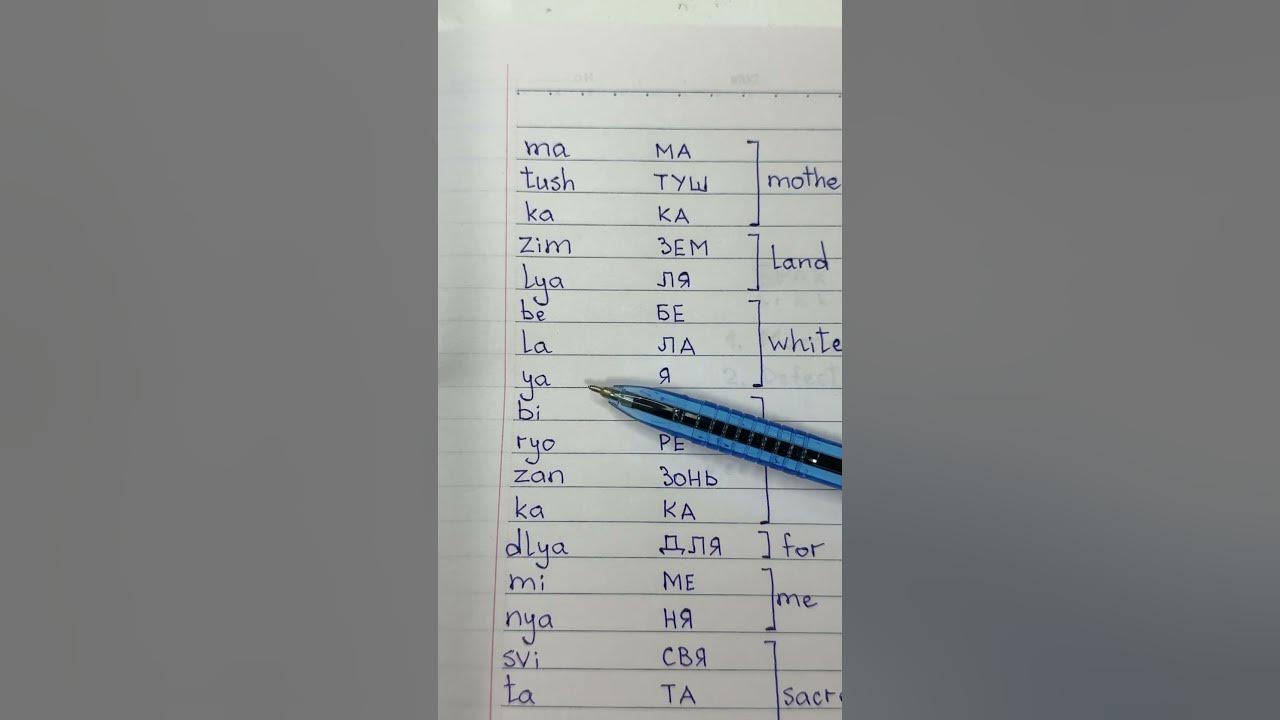 ma МА
tush ТУШ mothe
ka КА
zim ЗЕМ
Land
lya ЛЯ
be БЕ
La ЛА white
ya Я
bi
ryo РЕ
zan ЗОНЬ
ka КА
dlya ДЛЯ for
mi МЕ
me
nya НЯ
svi СВЯ
ta ТА sacr